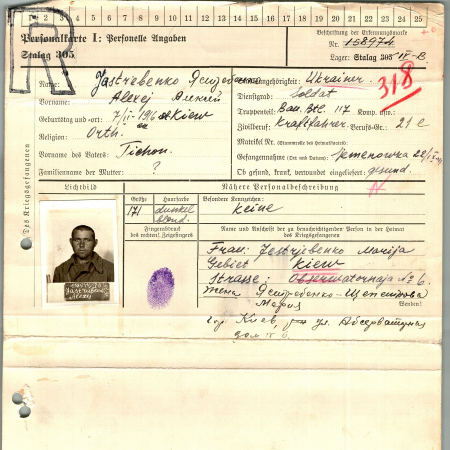 1 2 3 4 5 6 7 8 9 10 11 12 13 14 15 16 17 18 19 20 21 22 23 24 25
R
Personalkarte I: Personelle Angaben
Stalag 305
Beschriftung der Erkennungsmarke
Nr. 158974
Lager: Stalag 305
318
Des Kriegsgefangenen
Name: Jastrebenko
Staatsangehörigkeit: Ukrainer.
Vorname: Alexej Алексей
Dienstgrad: Soldat
Truppenteil: Bau. Btl. 117 Komp. usw.:
Geburtstag und -ort: Kiew
Zivilberuf: Kraftfahrer. Berufs-Gr.: 21 c
Religion: Orth.
Matrikel Nr. (Stammrolle des Heimatstaates)
Vorname des Vaters: Tichon.
Gefangennahme (Ort und Datum): Semenowka
Familienname der Mutter: ?
Ob gesund, krank, verwundet eingeliefert: gesund.
Lichtbild
Nähere Personalbeschreibung
Größe Haarfarbe Besondere Kennzeichen:
171 dunkel blond. keine
Fingerabdruck
des rechten Zeigefingers
Name und Anschrift der zu benachrichtigenden Person in der Heimat
des Kriegsgefangenen
Frau: Jestrjebenko Marija
Gebiet Kiew
Strasse: Observatornaja No 6.
Жена Ястребенко-
Мария
Wenden!
гор Киев, ул. Обсерваторная
дом № 6
158974
Jastrebenko
Alexej